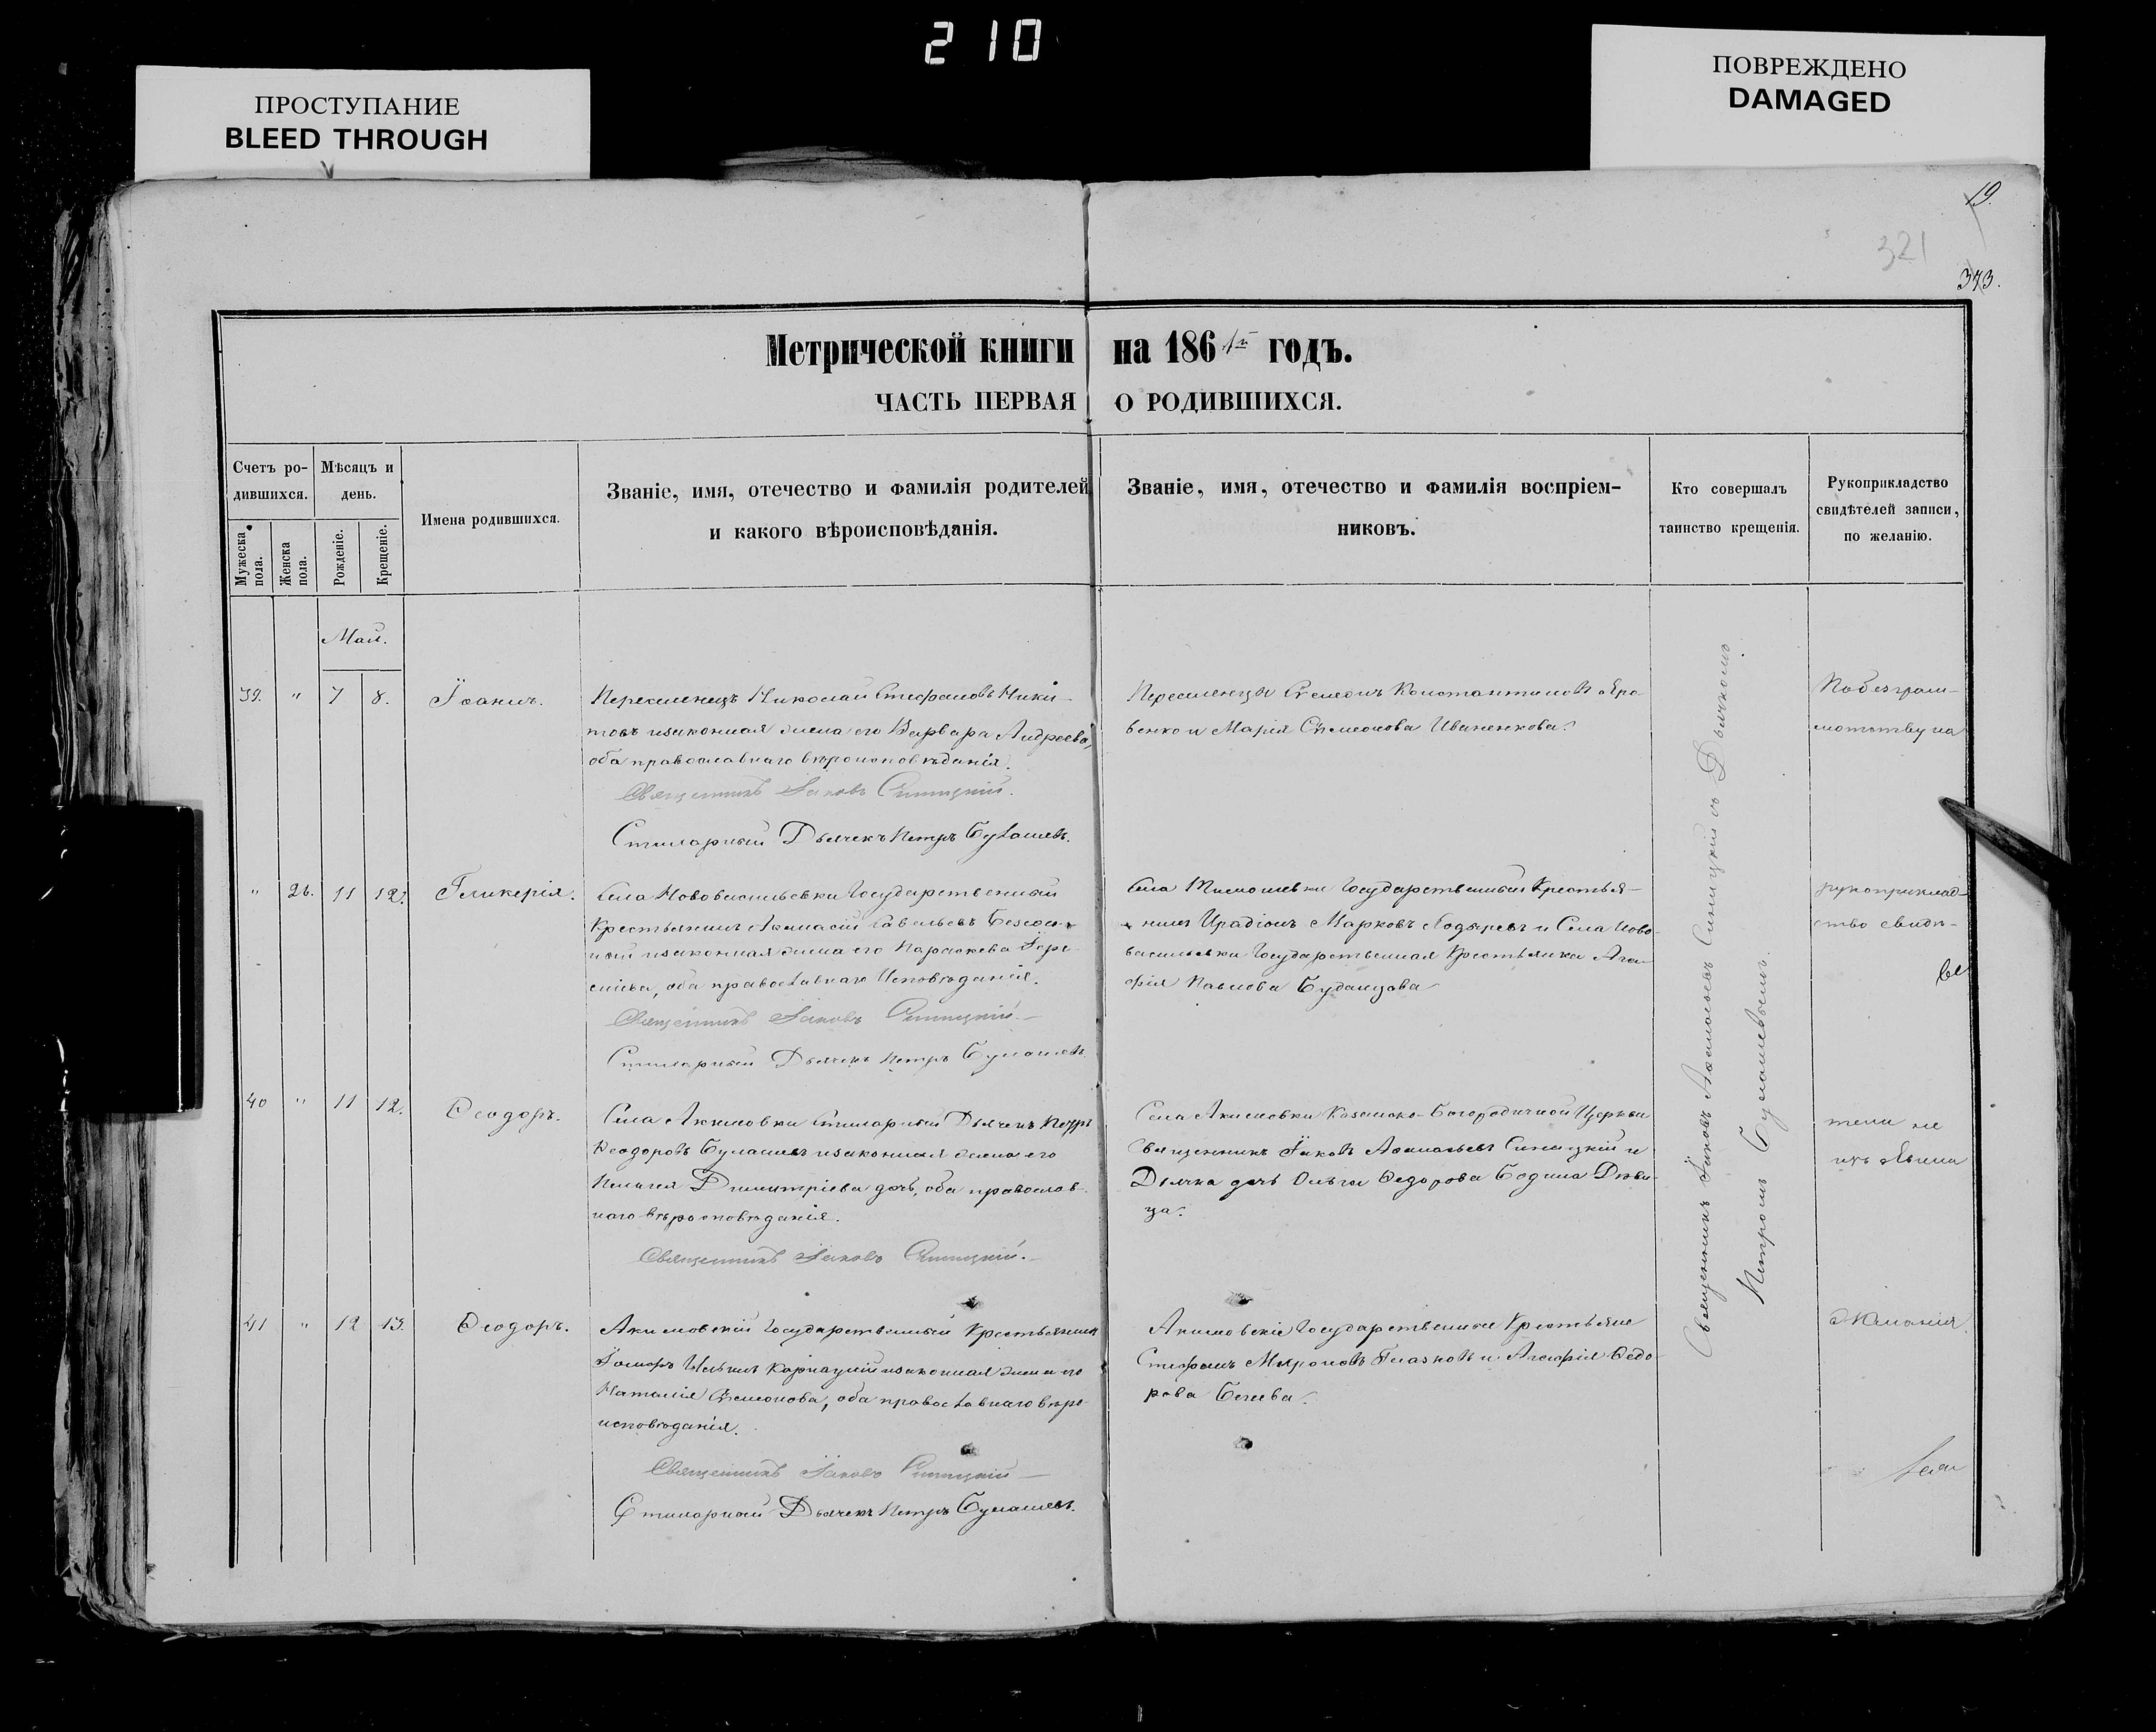 210
ПРОСТУПАНИЕ
BLEED THROUGH
ПОВРЕЖДЕНО
DAMAGED
19.
321
343.
Метрической книги на 186 1й годъ.
ЧАСТЬ ПЕРВАЯ О РОДИВШИХСЯ.
Счетъ родившихся.
Мужеска пола.
Женска пола.
Мѣсяцъ и день.
Рожденіе.
Крещеніе.
Имена родившихся.
Званіе, имя, отечество и фамилія родителей
и какого вѣроисповѣданія.
Званіе, имя, отечество и фамилія воспріем-
никовъ.
Кто совершалъ
таинство крещенія.
Рукоприкладство
свидѣтелей записи,
по желанію.
Май.
39. " 7 8. Іоаннъ.
Переселенецъ Николай Стефановъ Ники-
товъ и законная жена его Варвара Андреева,
оба православнаго вѣроисповѣданія.
Священникъ Іаковъ Синицкій.
Стихарный Дьячекъ Петръ Булашевъ.
Переселенцы Сѵмеонъ Константиновъ Яро-
венко и Марія Сѵмеонова Иваненкова.
По безграм-
мотству на
" 26. 11 12. Гликерія.
Села Нововасильевки Государственный
Крестьянинъ Аѳанасій Савельевъ
и законная жена его Параскева
оба православнаго Исповѣданія.
Священникъ Іаковъ Синицкій.
Стихарный Дьячекъ Петръ Булашевъ.
Села Тимошевки Государственный Крестья-
нинъ Иродіонъ Марковъ и Села Ново-
васильевки Государственная Крестьянка Ага-
фія Павлова Буданцова
рукоприклад-
ство свидѣ-
40 " 11 12. Ѳеодоръ.
Села Акимовки Стихарный Дьячекъ Петръ
Ѳеодоровъ Булашевъ и законная жена его
Пелагея Димитріева дочь, оба православ-
наго вѣроисповѣданія.
Священникъ Іаковъ Синицкій.
Села Акимовки Казанско-Богородичной Церкви
Священникъ Іаковъ Аѳанасьевъ Синицкій и
Дьячка дочь Ольга Ѳедорова Бодина Дѣви-
ца.
тели не
изъявили
41 " 12 13. Ѳеодоръ.
Акимовскій Государственный Крестьянинъ
Ильинъ Карнауцкій и законная жена его
Наталія Сѵмеонова, оба православнаго вѣро-
исповѣданія.
Священникъ Іаковъ Синицкій
Стихарный Дьячекъ Петръ Булашевъ.
Акимовскіе Государственные Крестьяне
Стефанъ Мироновъ Глазковъ и Агафія Ѳедо-
рова Бегеева.
Желанія.
Священникъ Іаковъ Аѳанасьевъ Синицкій съ Дьячкомъ
Петромъ Булашевымъ.